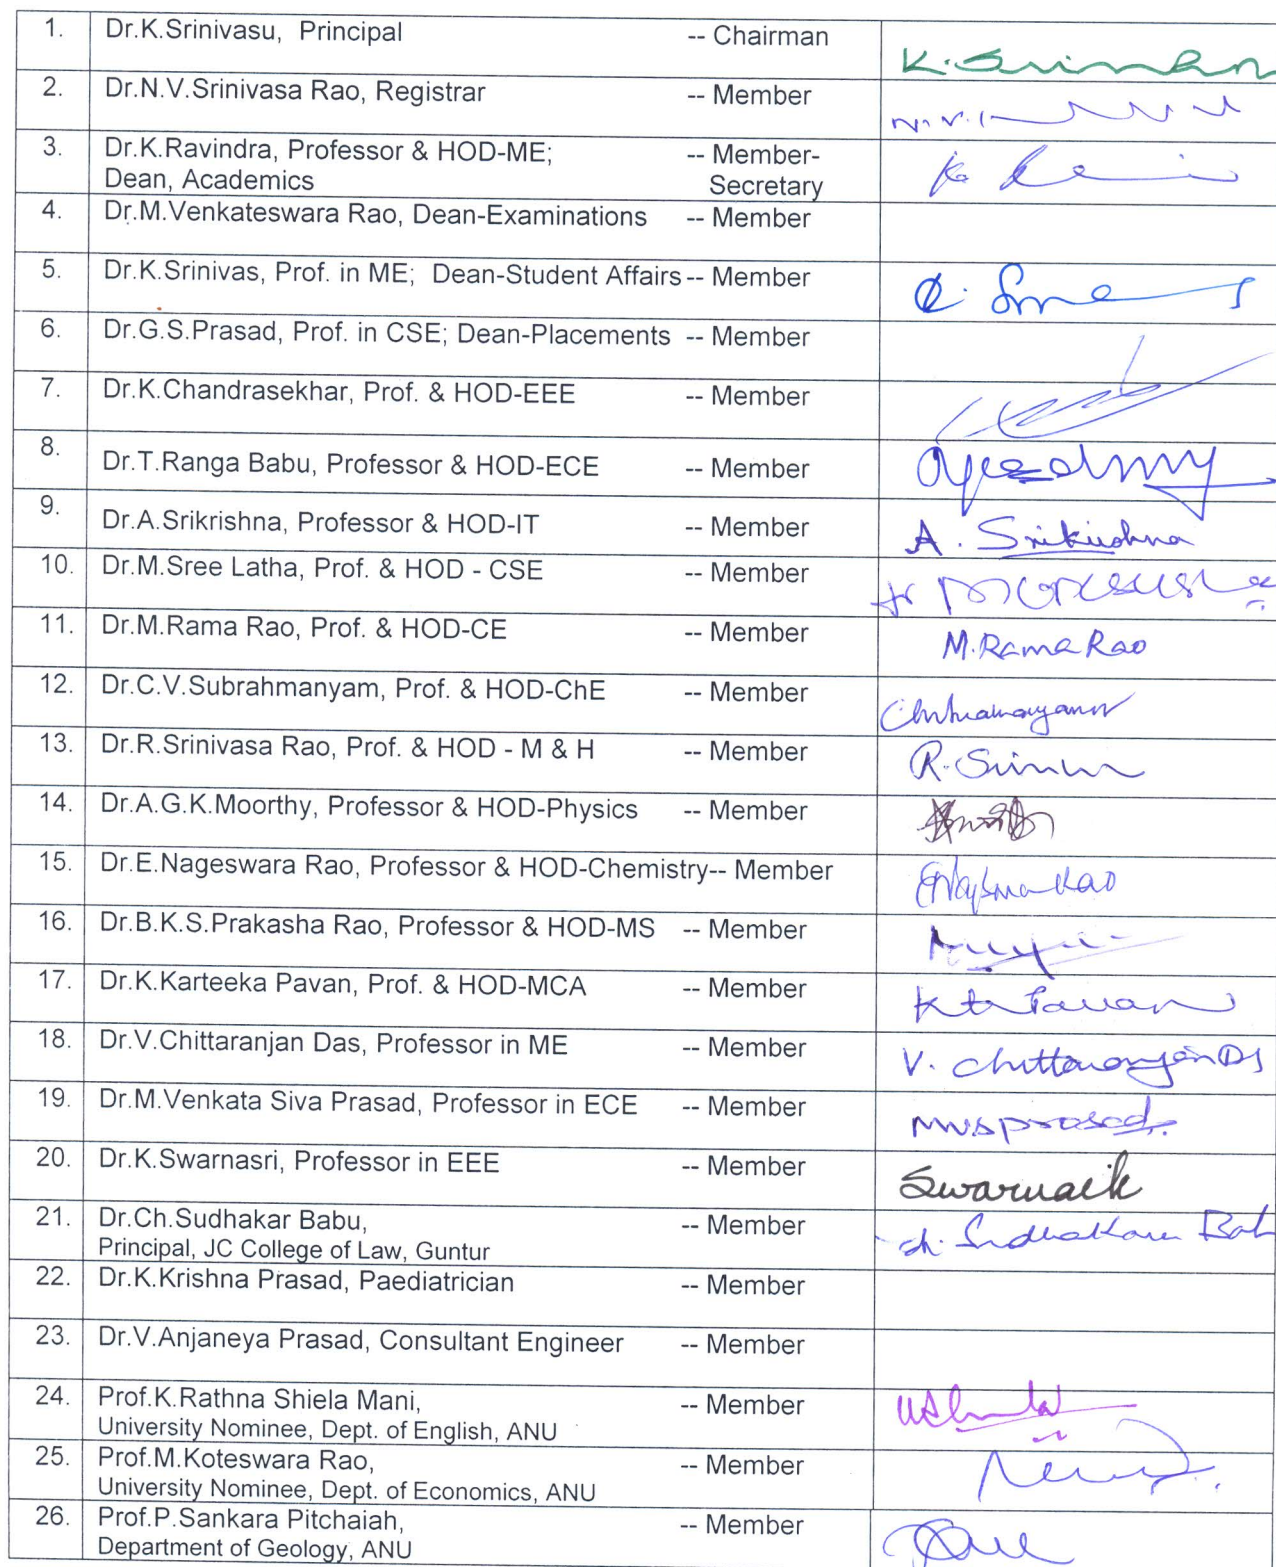 1. Dr.K.Srinivasu, Principal -- Chairman
2. Dr.N.V.Srinivasa Rao, Registrar -- Member
3. Dr.K.Ravindra, Professor & HOD-ME; -- Member-
Dean, Academics Secretary
4. Dr.M.Venkateswara Rao, Dean-Examinations -- Member
5. Dr.K.Srinivas, Prof. in ME; Dean-Student Affairs -- Member
6. Dr.G.S.Prasad, Prof. in CSE; Dean-Placements -- Member
7. Dr.K.Chandrasekhar, Prof. & HOD-EEE -- Member
8. Dr.T.Ranga Babu, Professor & HOD-ECE -- Member
9. Dr.A.Srikrishna, Professor & HOD-IT -- Member A. Srikrishna
10. Dr.M.Sree Latha, Prof. & HOD - CSE -- Member
11. Dr.M.Rama Rao, Prof. & HOD-CE -- Member M.Rama Rao
12. Dr.C.V.Subrahmanyam, Prof. & HOD-ChE -- Member
13. Dr.R.Srinivasa Rao, Prof. & HOD - M & H -- Member
14. Dr.A.G.K.Moorthy, Professor & HOD-Physics -- Member
15. Dr.E.Nageswara Rao, Professor & HOD-Chemistry-- Member
16. Dr.B.K.S.Prakasha Rao, Professor & HOD-MS -- Member
17. Dr.K.Karteeka Pavan, Prof. & HOD-MCA -- Member
18. Dr.V.Chittaranjan Das, Professor in ME -- Member V. Chittaranjan Das
19. Dr.M.Venkata Siva Prasad, Professor in ECE -- Member mvsprasad.
20. Dr.K.Swarnasri, Professor in EEE -- Member
21. Dr.Ch.Sudhakar Babu, -- Member Ch. Sudhakar Bab
Principal, JC College of Law, Guntur
22. Dr.K.Krishna Prasad, Paediatrician -- Member
23. Dr.V.Anjaneya Prasad, Consultant Engineer -- Member
24. Prof.K.Rathna Shiela Mani, -- Member
University Nominee, Dept. of English, ANU
25. Prof.M.Koteswara Rao, -- Member
University Nominee, Dept. of Economics, ANU
26. Prof.P.Sankara Pitchaiah, -- Member
Department of Geology, ANU